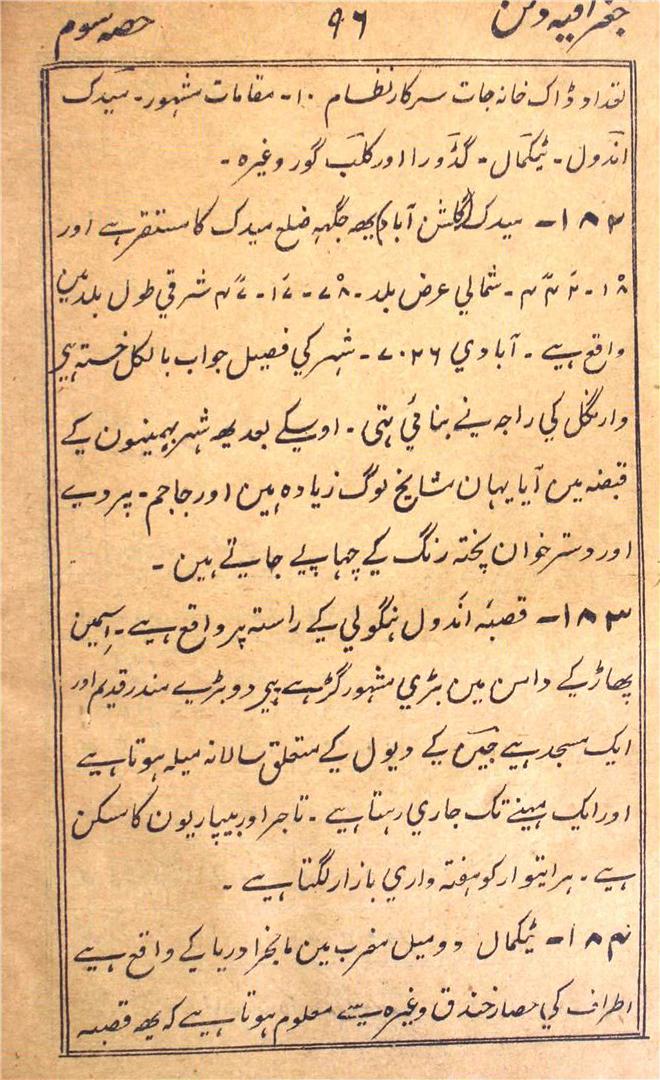 جغرافیہ دکن ۹۶ حصہ سوم
تعداد ڈاک خانہ جات سرکار نظام ۱۰- مقامات مشہور- میدک
اندول- ٹیکمال- گڈورا اور کلب گور وغیرہ -
۱۸۲- میدک (گلشن آباد) یھہ جگہہ ضلع میدک کا مستقر ہے اور
۱۸ - شمالی عرض بلد- ۷۸ - ۱۷ - شرقی طول بلد مین
واقع ہے - آبادی ۷۰۲۶ - شہر کی فصیل جو اب بالکل خستہ ہی
وارنگل کی راجہ نے بنائی ہتی - اوسکے بعد یھہ شہر بہمینون کے
قبضہ مین آیا یہان مشایخ لوگ زیادہ ہین اور جاجم- پردے
اور دسترخوان پختہ رنگ کے چہاپے جاتے ہین -
۱۸۳- قصبہ اندول ہنگولی کے راستہ پر واقع ہے - اسمین
پھاڑ کے دامن مین بڑی مشہور گڑہے ہی دو بڑے مندر قدیم اور
ایک مسجد ہے کے دیول کے متعلق سالانہ میلہ ہوتا ہے
اور ایک مہینے تک جاری رہتا ہے - تاجر اور بیپاریون کا مسکن
ہے - ہر ایتوار کو ہفتہ واری بازار لگتا ہے -
۱۸۴- ٹیکمال دو میل مغرب مین مانجرا دریا کے واقع ہے
اطراف کی حصار خندق وغیرہ سے معلوم ہوتا ہے کہ یھہ قصبہ